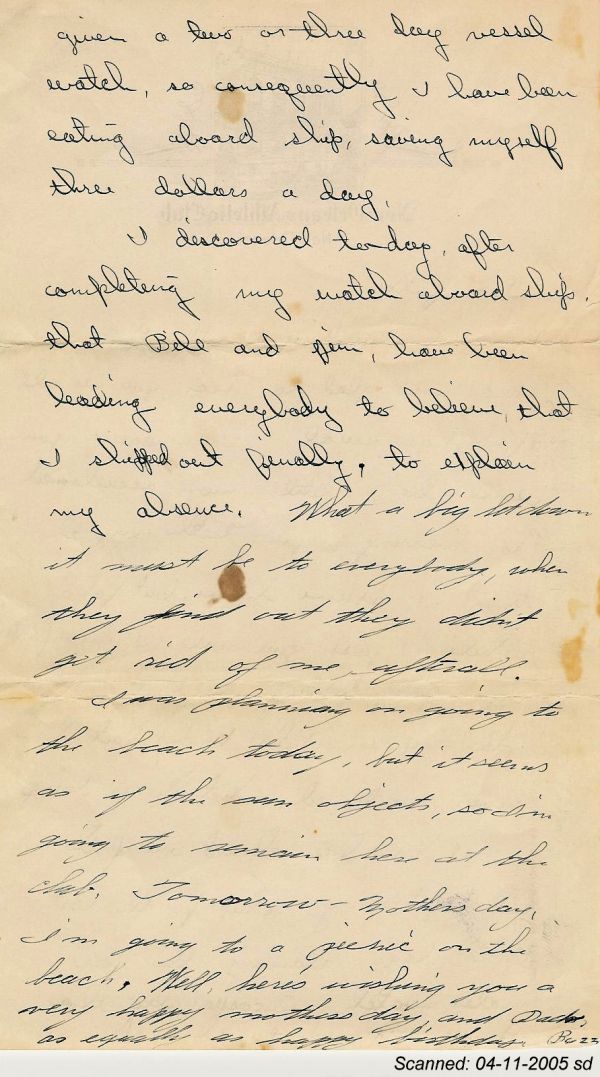 given a two or three day vessel
watch, so consequently I have been
eating aboard ship, saving myself
three dollars a day.
I discovered to-day, after
completing my watch aboard ship,
that Bill and Jim, have been
leading everybody to believe, that
I shipped out finally, to explain
my absence. What a big let down
it must be to everybody, when
they find out they didnt
get rid of me, afterall.
I was planning on going to
the beach today, but it seems
as if the sun objects, so I'm
going to remain here at the
club. Tomorrow - Mothers day,
I'm going to a picnic on the
beach. Well, here's wishing you a
very happy mothers day, and Dad,
as equally as happy birthday.
Scanned: 04-11-2005 sd